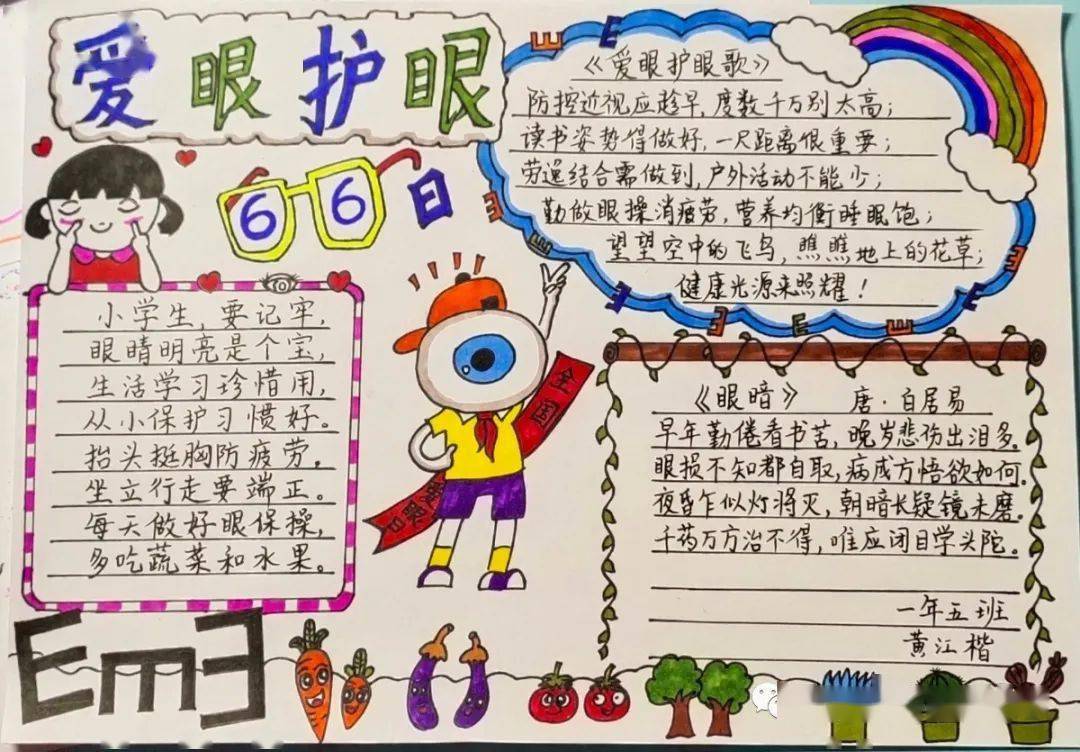 爱眼护眼
6 6日
《爱眼护眼歌》
防控近视应趁早,度数千万别太高;
读书姿势得做好,一尺距离很重要;
劳逸结合需做到,户外活动不能少;
勤做眼操消疲劳,营养均衡睡眠饱;
望望空中的飞鸟,瞧瞧地上的花草;
健康光源来照耀!
小学生,要记牢,
眼睛明亮是个宝,
生活学习珍惜用,
从小保护习惯好。
抬头挺胸防疲劳。
坐立行走要端正。
每天做好眼保操,
多吃蔬菜和水果。
全国
爱眼日
《眼暗》 唐·白居易
早年勤倦看书苦,晚岁悲伤出泪多。
眼损不知都自取,病成方悟欲如何。
夜昏乍似灯将灭,朝暗长疑镜未磨。
千药万方治不得,唯应闭目学头陀。
一年五班
黄江楷
E m E